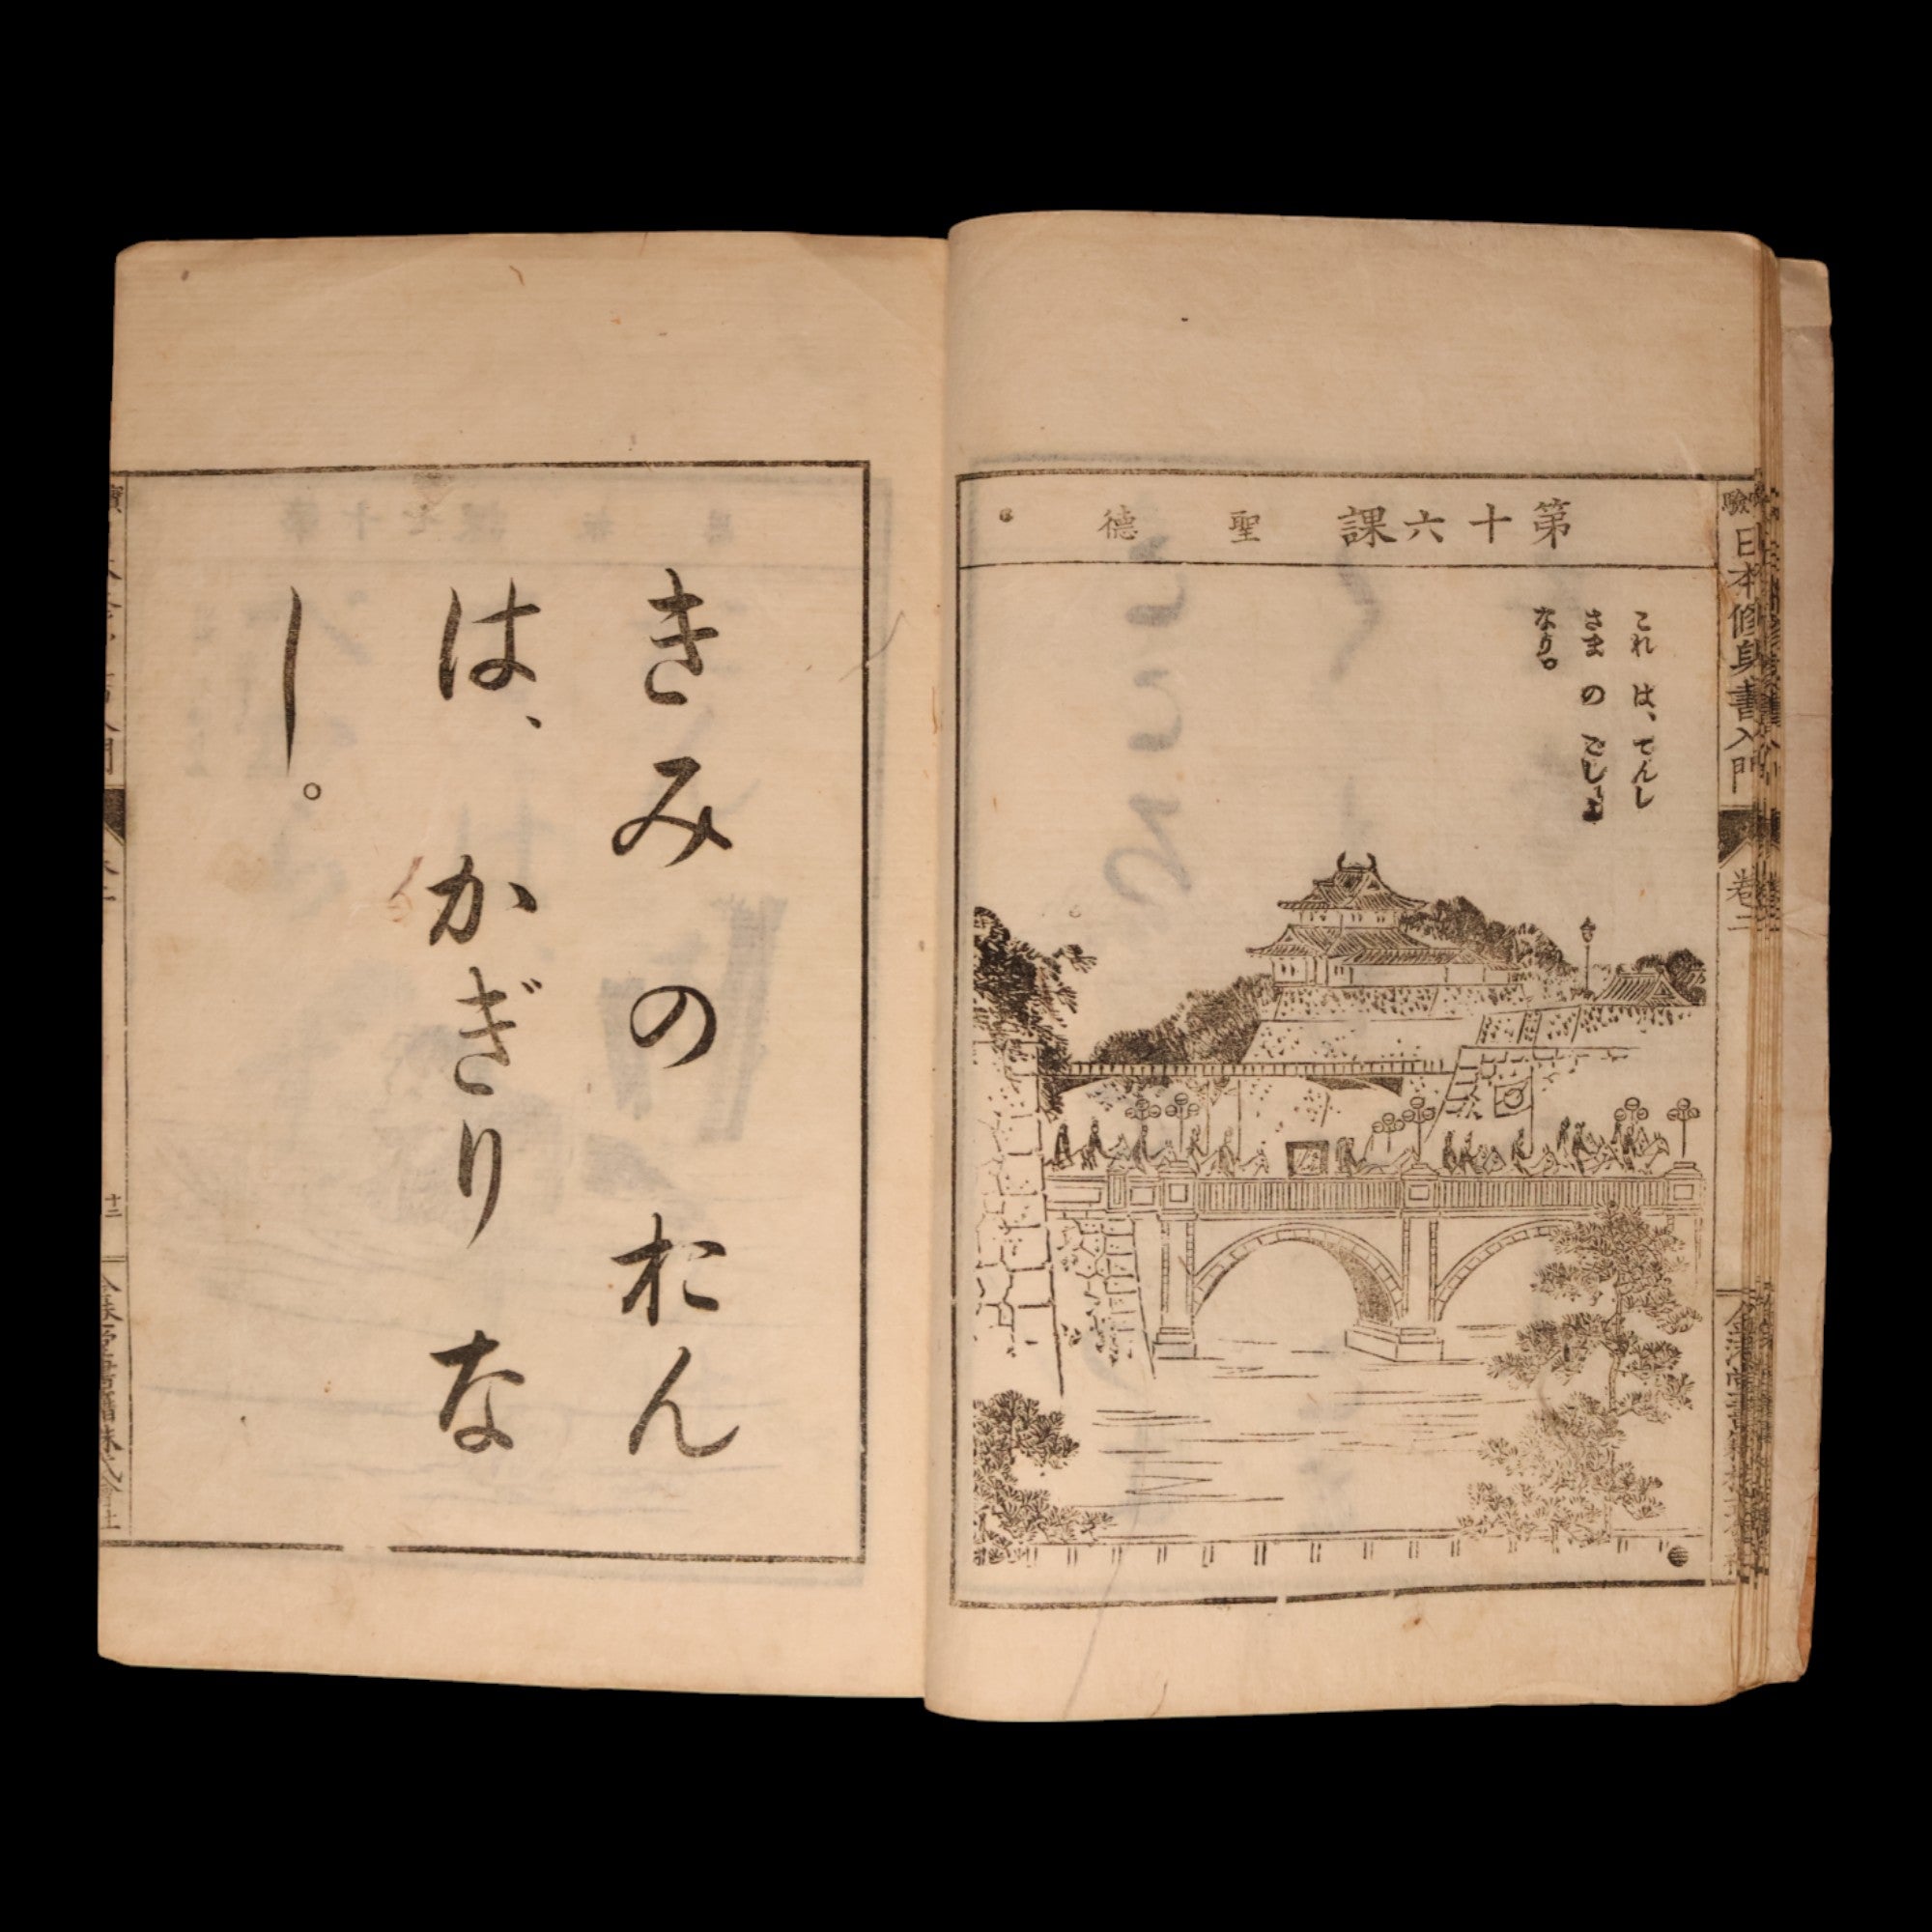 第十六課　聖德
これ は、てんし
さま の ごしよ
なり。
日本修身書入門
卷二
きみ の おん
は、 かぎり な
し。
十二